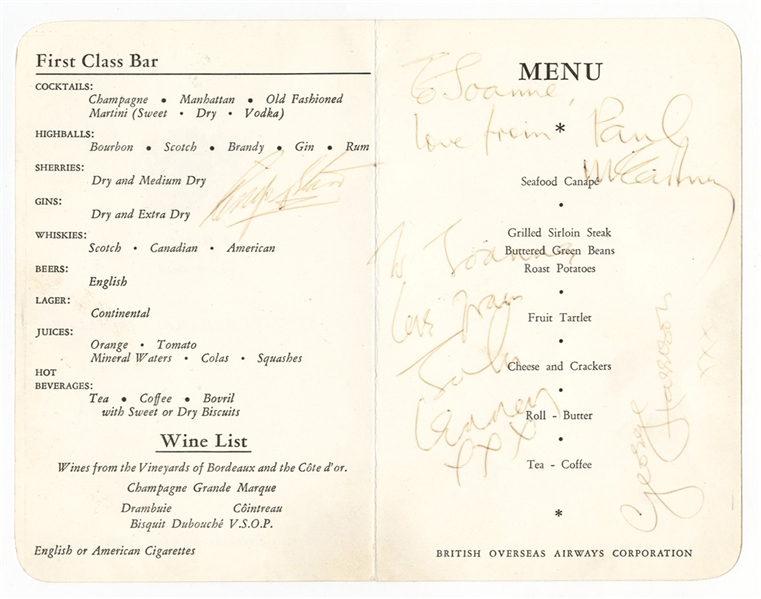 First Class Bar
COCKTAILS:
Champagne • Manhattan • Old Fashioned
Martini (Sweet • Dry • Vodka)
HIGHBALLS:
Bourbon • Scotch • Brandy • Gin • Rum
SHERRIES:
Dry and Medium Dry
GINS:
Dry and Extra Dry
WHISKIES:
Scotch • Canadian • American
BEERS:
English
LAGER:
Continental
JUICES:
Orange • Tomato
Mineral Waters • Colas • Squashes
HOT
BEVERAGES:
Tea • Coffee • Bovril
with Sweet or Dry Biscuits
Wine List
Wines from the Vineyards of Bordeaux and the Côte d'or.
Champagne Grande Marque
Drambuie Côintreau
Bisquit Dubouché V.S.O.P.
English or American Cigarettes
Ringo Starr
MENU
*
Seafood Canapé
•
Grilled Sirloin Steak
Buttered Green Beans
Roast Potatoes
•
Fruit Tartlet
•
Cheese and Crackers
•
Roll - Butter
•
Tea - Coffee
*
BRITISH OVERSEAS AIRWAYS CORPORATION
To Joanne,
love from Paul
McCartney
To Joanne,
love from
John
Lennon
xxx
George Harrison
xxx